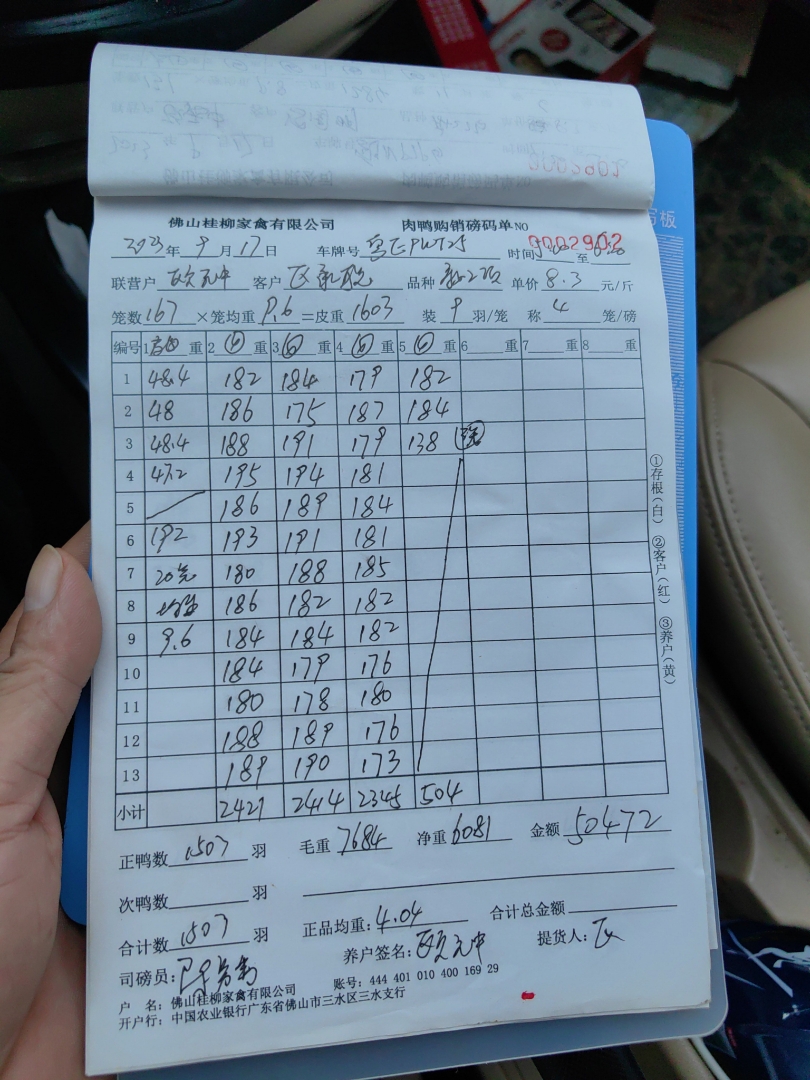 写板
佛山桂柳家禽有限公司 肉鸭购销磅码单 NO 0002902
2023年9月17日 车牌号 时间 至
联营户 客户 品种 单价 8.3 元/斤
笼数 167 ×笼均重 9.6 =皮重 1603 装 9 羽/笼 称 4 笼/磅
编号 1 重 2 重 3 重 4 重 5 重 6 重 7 重 8 重
1 48.4 182 184 179 182
2 48 186 175 187 184
3 48.4 188 191 179 138
4 47.2 195 194 181
5 186 189 184
6 192 193 191 181
7 20笼 180 188 185
8 均重 186 182 182
9 9.6 184 184 182
10 184 179 176
11 180 178 180
12 188 189 176
13 189 190 173
小计 2421 2414 2345 504
正鸭数 1507 羽 毛重 7684 净重 6081 金额 50472
次鸭数 羽
合计数 1507 羽 正品均重: 4.04 合计总金额
司磅员: 养户签名: 提货人:
户 名: 佛山桂柳家禽有限公司 账号: 444 401 010 400 169 29
开户行: 中国农业银行广东省佛山市三水区三水支行
①存根(白) ②客户(红) ③养户(黄)